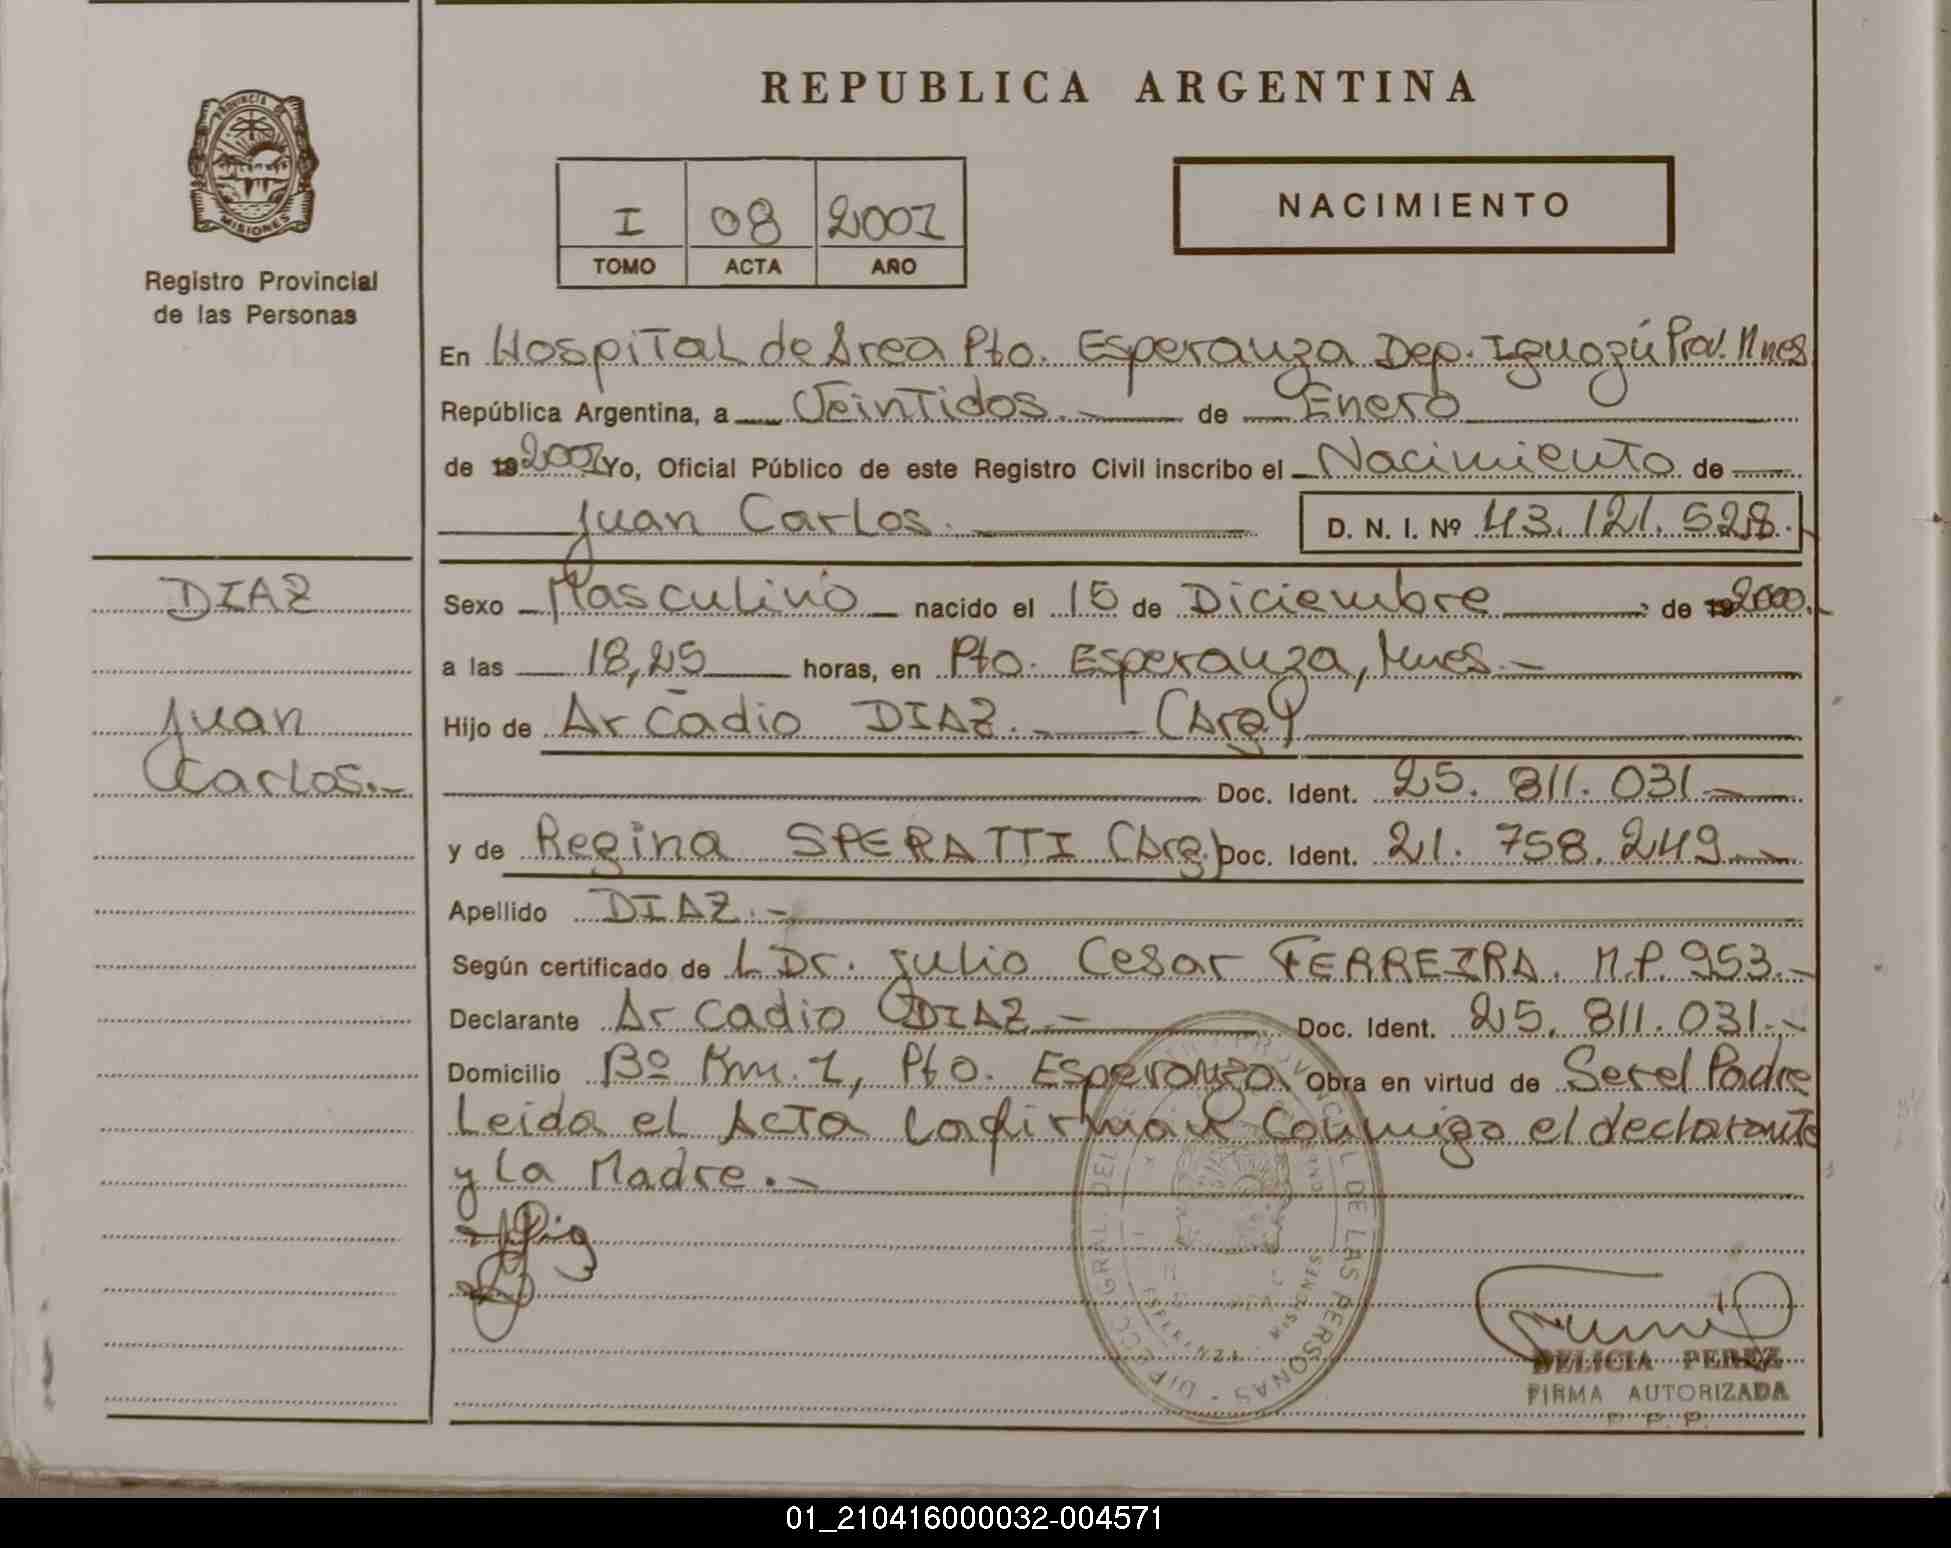 REPUBLICA ARGENTINA
PROVINCIA DE
MISIONES
Registro Provincial
de las Personas
I 08 2001
TOMO ACTA AÑO
NACIMIENTO
En Hospital de Area Pto. Esperanza Dep. Iguazú Prov. Mnes
República Argentina, a Veintidos.- de Enero
de 19 2001 Yo, Oficial Público de este Registro Civil inscribo el Nacimiento de
Juan Carlos.
D. N. I. Nº 43.121.528.
DIAZ
Juan
Carlos.-
Sexo Masculino nacido el 15 de Diciembre de 19 2000.
a las 18,25 horas, en Pto. Esperanza, Mnes.-
Hijo de Arcadio DIAZ.- (Arg)
Doc. Ident. 25.811.031.-
y de Regina SPERATTI (Arg.) Doc. Ident. 21.758.249.-
Apellido DIAZ.-
Según certificado de L Dr. Julio Cesar FERREIRA. M.P. 953.-
Declarante Arcadio DIAZ.- Doc. Ident. 25.811.031.-
Domicilio Bº Km. 1, Pto. Esperanza Obra en virtud de Ser el Padre
Leida el Acta la firman Conmigo el declarante
y la Madre.-
DIRECC. GRAL. DEL PROVINCIAL DE LAS PERSONAS
MISIONES
DELICIA PEREZ
FIRMA AUTORIZADA
01_210416000032-004571